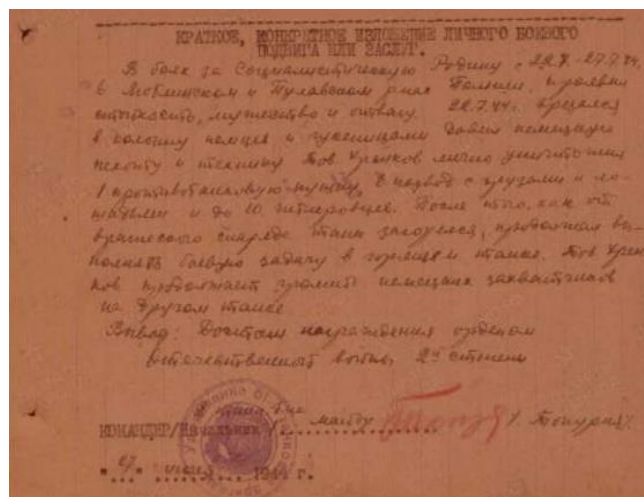 КРАТКОЕ, КОНКРЕТНОЕ ИЗЛОЖЕНИЕ ЛИЧНОГО БОЕВОГО
ПОДВИГА ИЛИ ЗАСЛУГ.
В боях за Социалистическую Родину с 22.7-27.7.44,
в Люблинском и Пулавском р-нах Польши, проявил
стойкость, мужество и отвагу. 22.7.44. врезался
в колонну немцев и гусеницами давил немецкую
пехоту и технику. Тов. лично уничтожил
1 противотанковую пушку, 6 подвод с грузами и ло-
шадьми и до 10 гитлеровцев. После того, как от
вражеского снаряда танк загорелся, продолжал вы-
полнять боевую задачу в горящем танке. Тов
продолжает громить немецких захватчиков
на другом танке
Вывод: Достоин награждения орденом
отечественной войны 2й степени
КОМАНДИР/Начальник/ майор
"27" июля 1944 г.